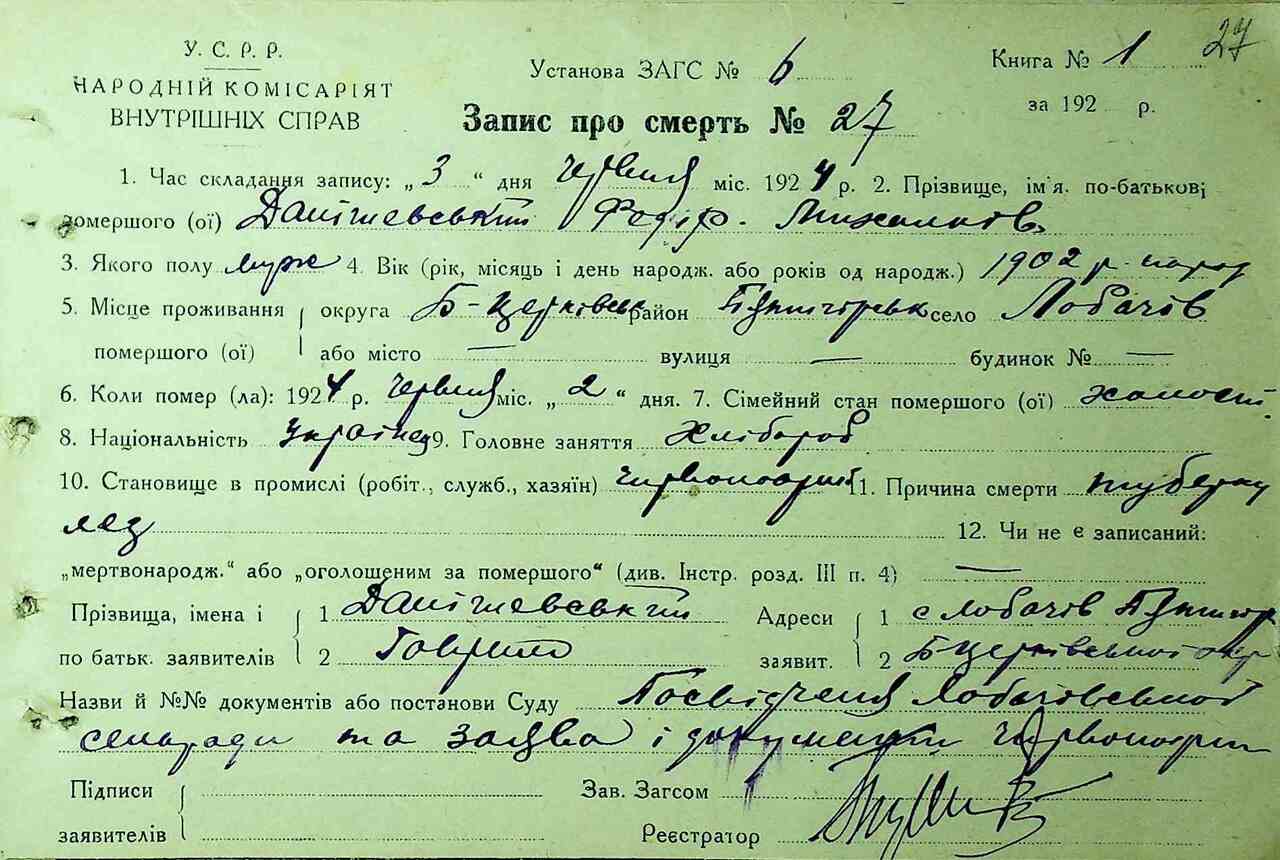 27
У. С. Р. Р.
НАРОДНІЙ КОМІСАРІЯТ
ВНУТРІШНІХ СПРАВ
Установа ЗАГС № 6
Книга № 1
за 192 р.
Запис про смерть № 27
1. Час складання запису: „ 3 “ дня червня міс. 1924 р. 2. Прізвище, ім'я. по-батькові
помершого (ої) Данішевський Федір Михалків
3. Якого полу муж 4. Вік (рік, місяць і день народж. або років од народж.) 1902 р. народ
5. Місце проживання помершого (ої) округа Б-Церківськ район П'ятигорськ село Лобачів
або місто — вулиця — будинок № —
6. Коли помер (ла): 1924 р. червня міс. „ 2 “ дня. 7. Сімейний стан помершого (ої) холост.
8. Національність Українец 9. Головне заняття Хлібороб
10. Становище в промислі (робіт., служб., хазяїн) червоноарм 11. Причина смерти туберку
лез 12. Чи не є записаний:
„мертвонародж.“ або „оголошеним за помершого“ (див. Інстр. розд. III п. 4) —
Прізвища, імена і по батьк. заявителів 1 Данішевський
2 Гаврило
Адреси заявит. 1 с Лобачів П'ятигор
2 Бцерківської окр
Назви й №№ документів або постанови Суду Посвідченя Лобачівської
сельради та заява і документи червоноарм
Підписи заявителів
Зав. Загсом
Реєстратор